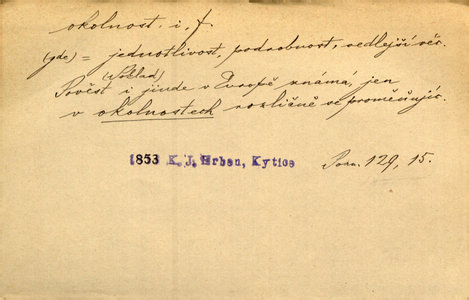 okolnost, i, f.
(zde) = jednotlivost, podrobnost, vedlejší věc.
(Poklad)
Pověst i jinde v Evropě známá, jen
v okolnostech rozličně se proměňujíc.
1853 K. J. Erben, Kytice Pozn. 129, 15.